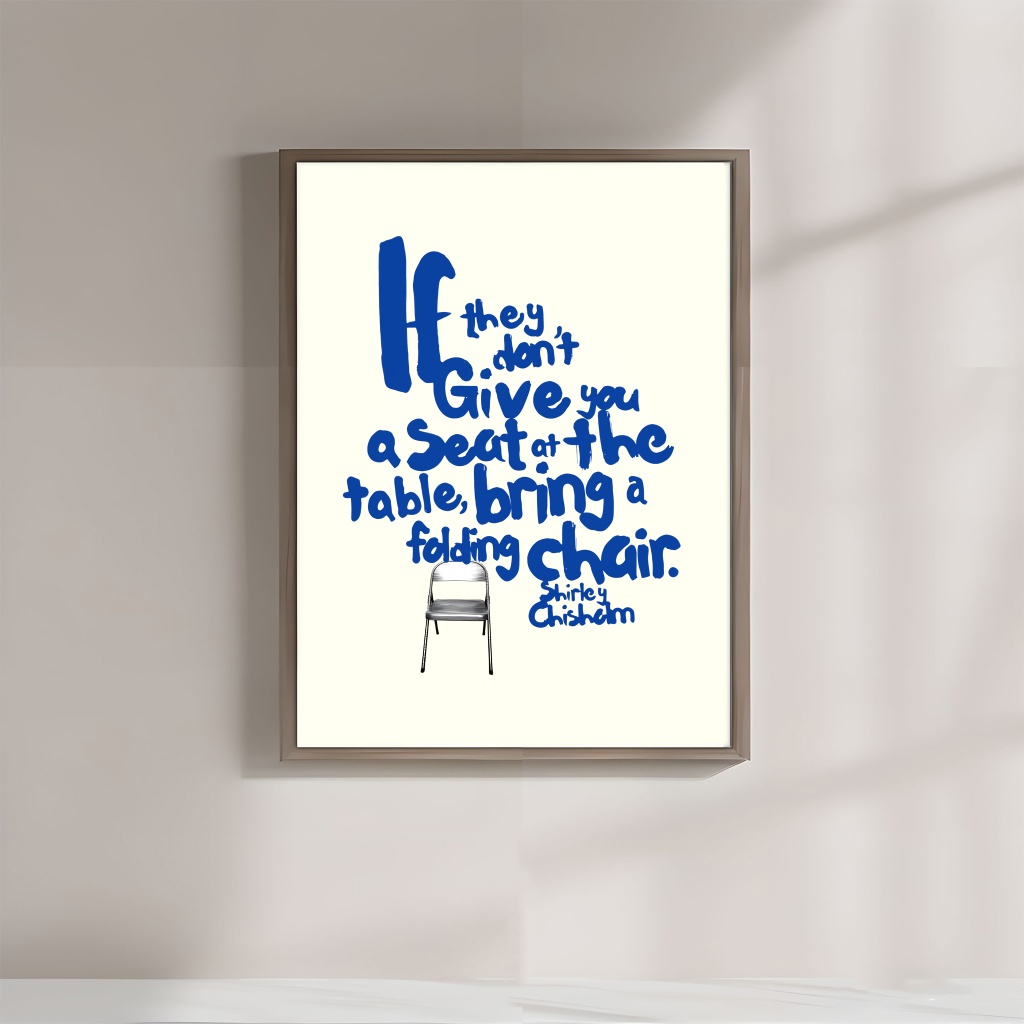 If they
don't
Give you
a Seat at the
table, bring a
folding chair.
Shirley
Chisholm